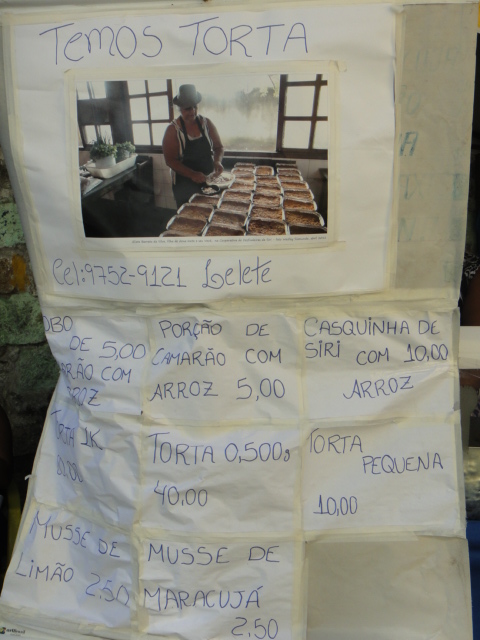 TEMOS TORTA
Cel:9752-9121 Lelete
OBO
DE 5,00
ARÃO COM
ROZ
PORÇÃO DE
CAMARÃO COM
ARROZ 5,00
CASQUINHA DE
SIRI COM 10,00
ARROZ
TORTA 1K
TORTA 0,500g
40,00
TORTA
PEQUENA
10,00
MUSSE DE
LIMÃO 2,50
MUSSE DE
MARACUJÁ
2,50